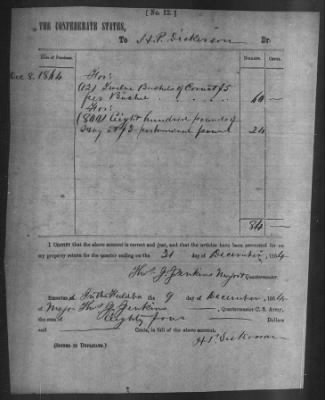 [No. 12.]
THE CONFEDERATE STATES,
To H. P. Dickinson Dr.
Date of Purchase. Dollars. Cents.
Dec 8. 1864 For:
(12) Twelve Bushels of Corn at $5
per Bushel 60
For:
(800) Eight hundred pounds of
at $3 per hundred pound 24
84
I CERTIFY that the above account is correct and just, and that the articles have been accounted for on
my property return for the quarter ending on the 31 day of December, 1864
Tho. J. Jenkins Major & Quartermaster.
RECEIVED at the 9 day of December, 1864
of Major Tho. J. Jenkins, Quartermaster C. S. Army,
the sum of Eighty four Dollars
and Cents, in full of the above account.
(SIGNED IN DUPLICATE.) H. P. Dickinson